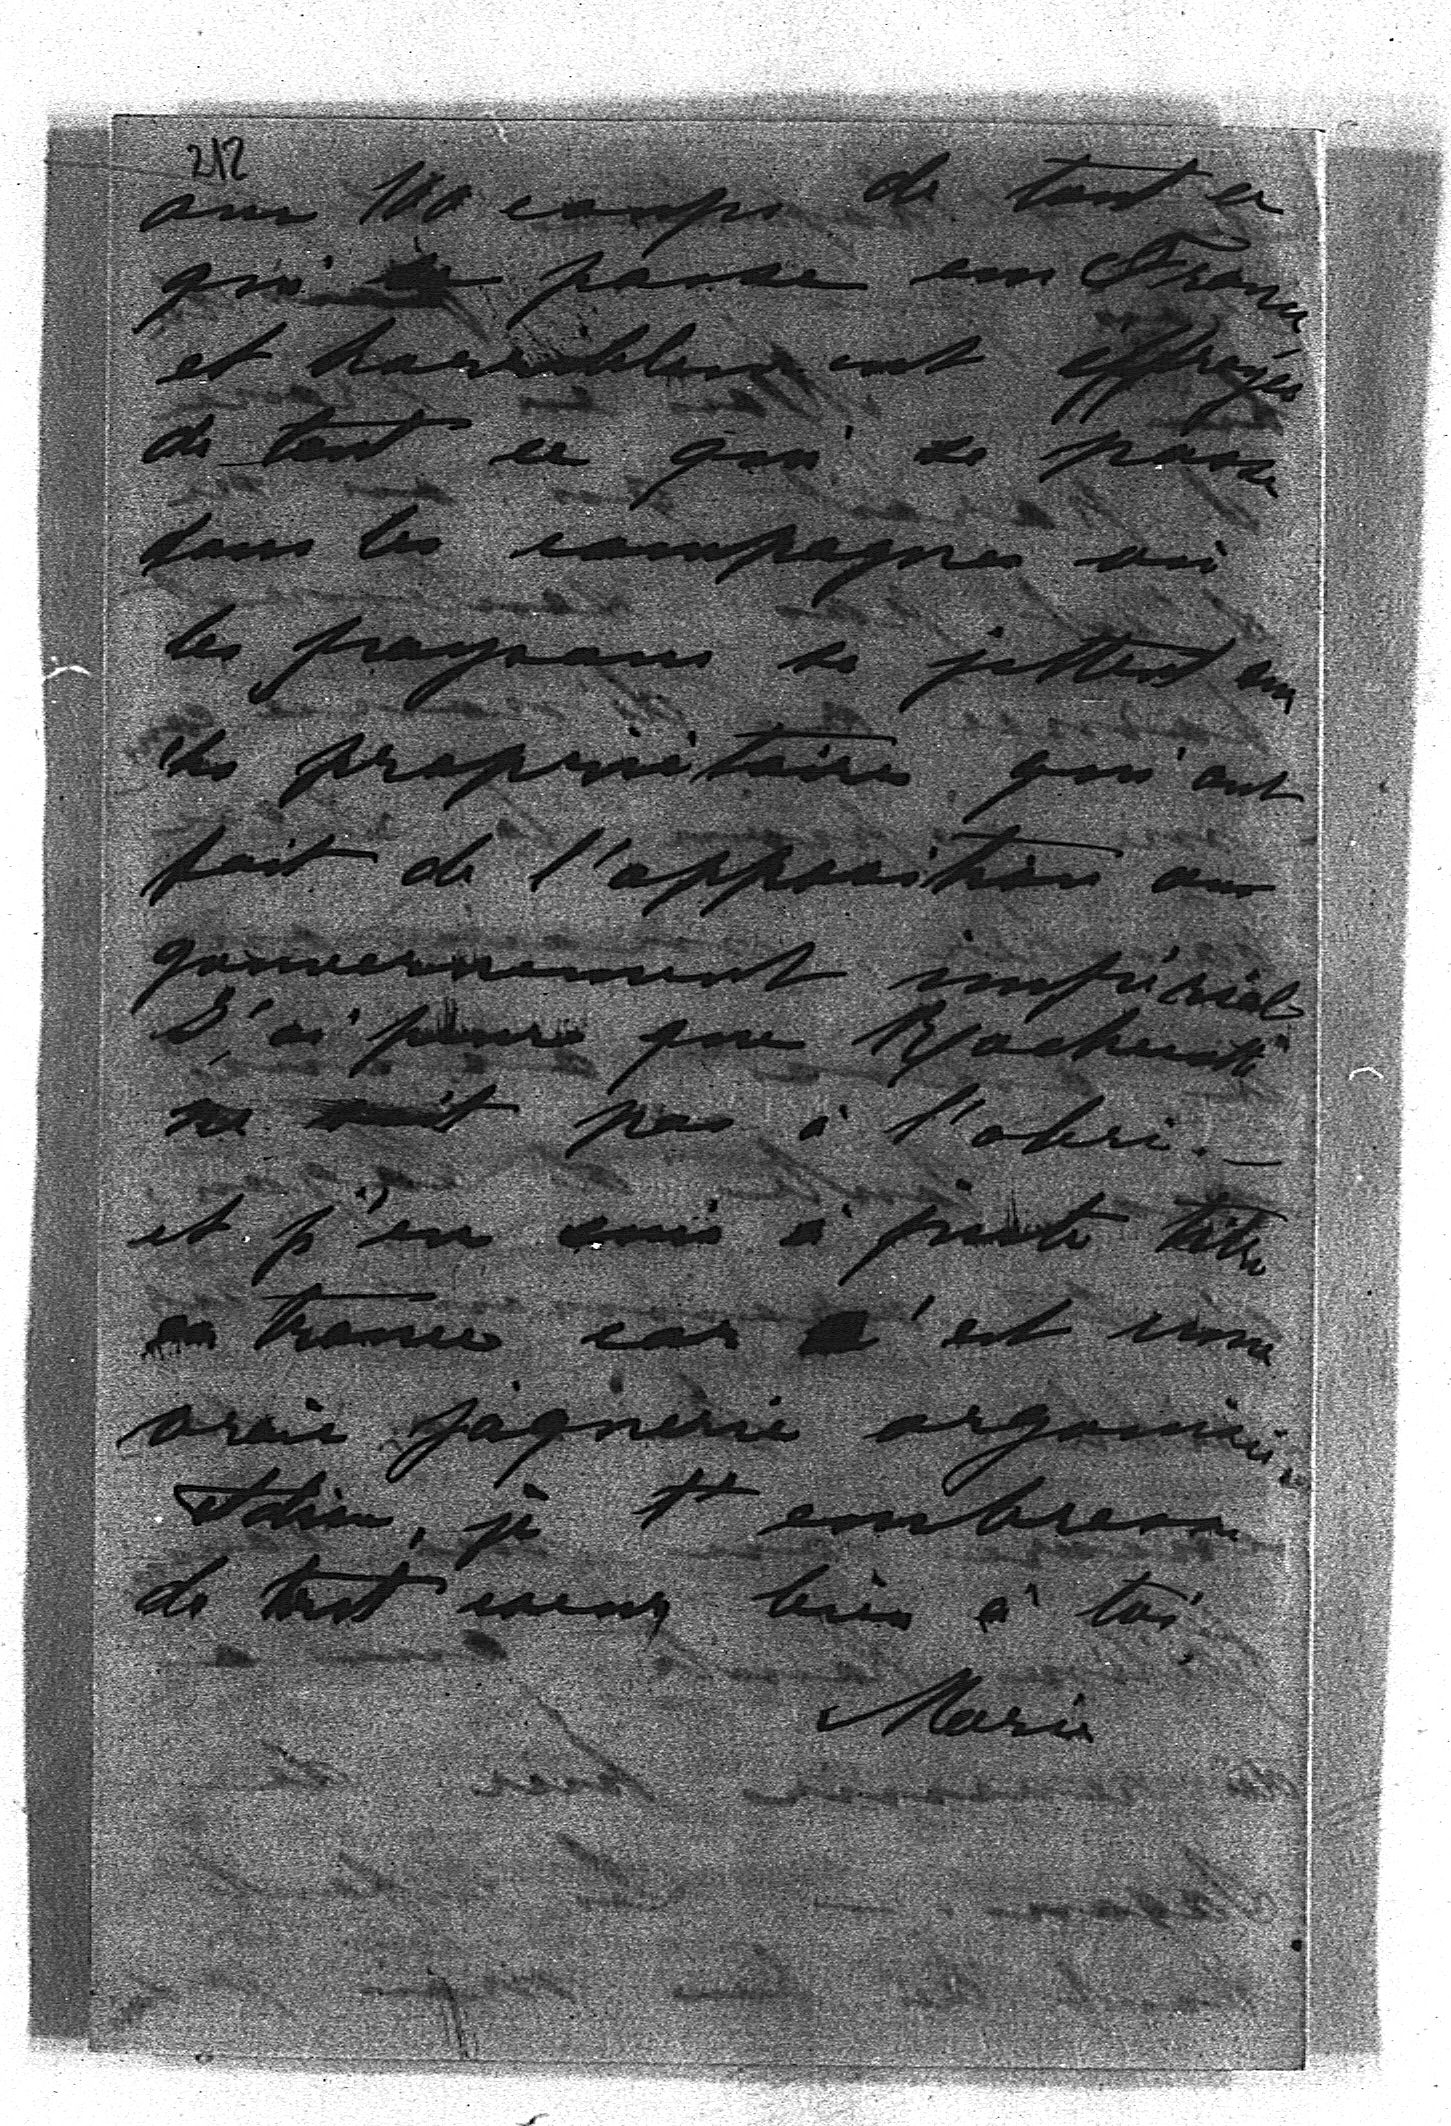 212
aux 100 coups de tout ce
qui se passe en France
et horriblement effrayée
de tout ce qui se passe
dans les campagnes où
les paysans se jettent sur
les propriétaires qui ont
fait de l'opposition au
gouvernement impérial
J'ai peur que
ne soit pas à l'abri. —
et j'en suis à juste titre
en transe car c'est une
vraie jaquerie organisée.
Adieu, je t'embrasse
de tout coeur bien à toi.
Marie